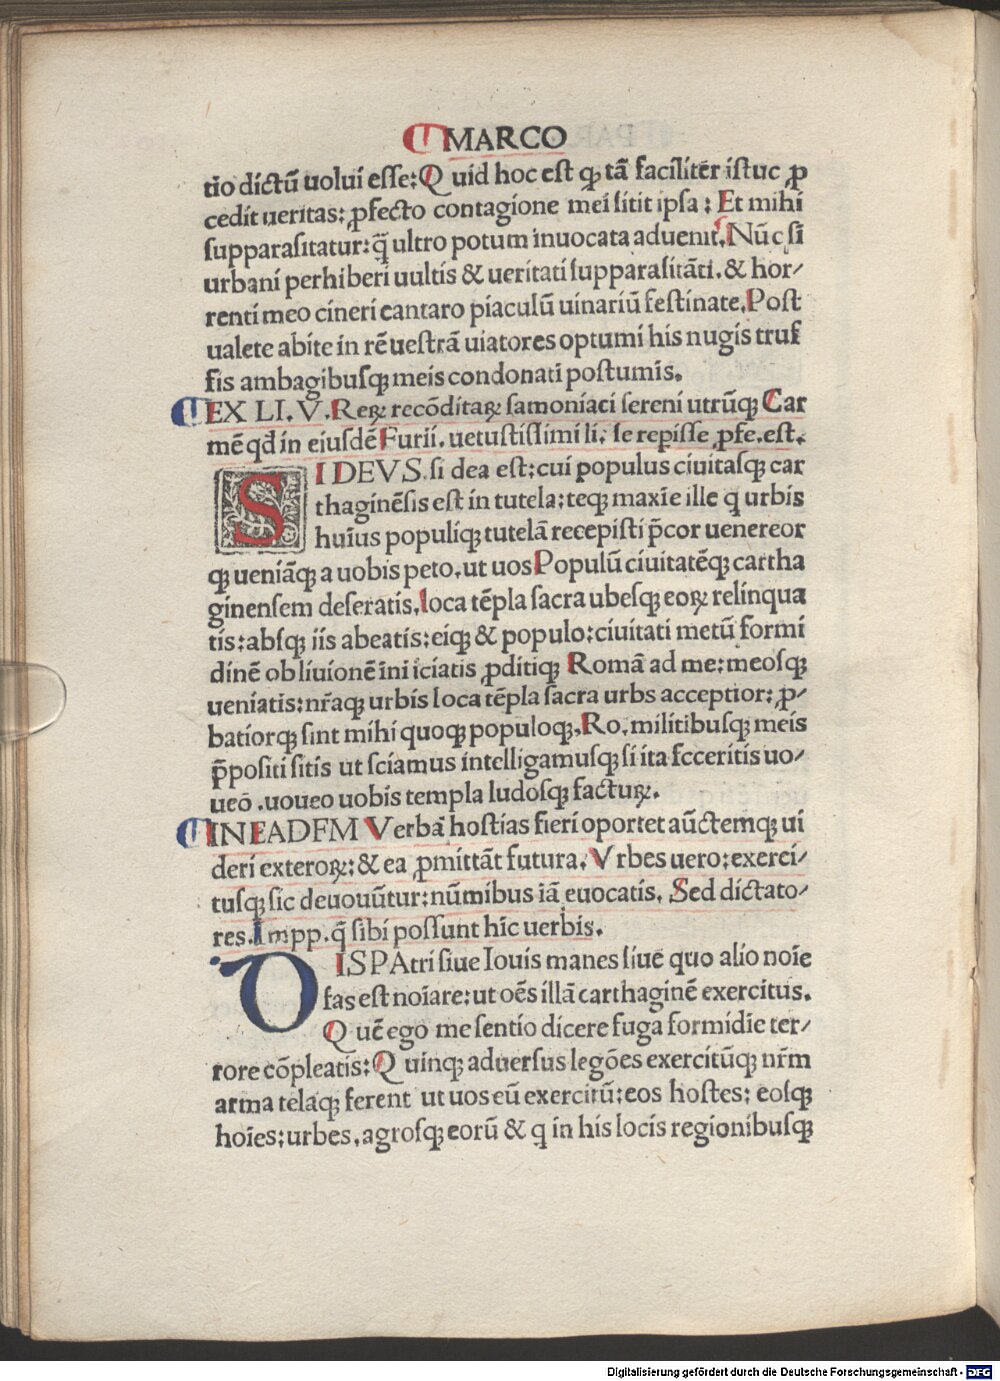 MARCO
tio dictū uolui esse: Quid hoc est ꝙ tā faciliter istuc ꝓ
cedit ueritas: ꝓfecto contagione mei sitit ipsa: Et mihi
supparasitatur: q̄ ultro potum inuocata aduenit. Nūc si
urbani perhiberi uultis & ueritati supparasitāti. & hor/
renti meo cineri cantaro piaculū uinariū festinate. Post
ualete abite in rē uestrā uiatores optumi his nugis truf
fis ambagibusqꝫ meis condonati postumis.
EX LI. V. Reꝝ recōditaꝝ samoniaci sereni utrūqꝫ Car
mē qđ in eiusdē Furii. uetustissimi li. se repisse ꝓfe. est.
SI DEVS. si dea est: cui populus ciuitasqꝫ car
thaginēsis est in tutela: teqꝫ maxīe ille q urbis
huius populiqꝫ tutelā recepisti p̄cor uenereor
qꝫ ueniāqꝫ a uobis peto. ut uos Populū ciuitatēqꝫ cartha
ginensem deseratis. loca tēpla sacra ubesqꝫ eoꝝ relinqua
tis: absqꝫ iis abeatis: eiqꝫ & populo: ciuitati metū formi
dinē obliuionē iniiciatis ꝓditiqꝫ Romā ad me: meosqꝫ
ueniatis: nr̄aqꝫ urbis loca tēpla sacra urbs acceptior: ꝓ/
batiorqꝫ sint mihi quoqꝫ populoqꝫ. Ro. militibusqꝫ meis
p̄positi sitis ut sciamus intelligamusqꝫ si ita fcceritis uo/
ueō. uoueo uobis templa ludosqꝫ factuꝝ.
IN EADFM Verba hostias fieri oportet aūctemqꝫ ui
deri exteroꝝ: & ea ꝓmittāt futura. Vrbes uero: exerci/
tusqꝫ sic deuouūtur: nūmibus iā euocatis. Sed dictato/
res. Impp. q̄ sibi possunt hic uerbis.
DIS PAtri siue Iouis manes siue quo alio noīe
fas est noīare: ut oēs illā carthaginē exercitus.
Quē ego me sentio dicere fuga formidīe ter/
rore cōpleatis: Quinqꝫ aduersus legōes exercitūqꝫ nr̄m
arma telaqꝫ ferent ut uos eū exercitū: eos hostes: eosqꝫ
hoīes: urbes. agrosqꝫ eorū & q in his locis regionibusqꝫ
Digitalisierung gefördert durch die Deutsche Forschungsgemeinschaft - DFG